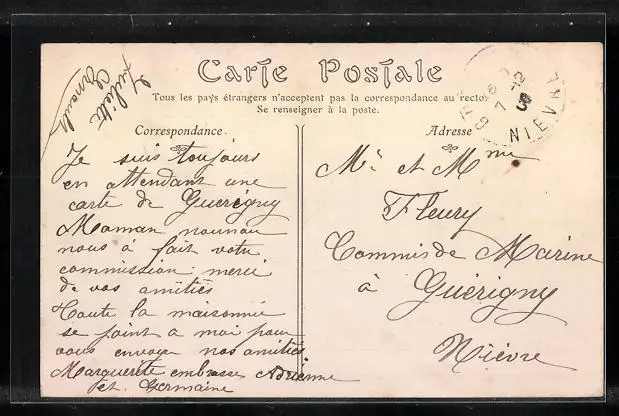 Carte Postale
Tous les pays étrangers n'acceptent pas la correspondance au recto.
Se renseigner à la poste.
Correspondance.
Je suis toujours
en attendant une
carte de Guerigny
Maman nounou
nous a fait votre
commission: merci
de vos amitiés
Toute la maisonnée
se joint a moi pour
vous envoyer nos amitiés
Marguerite embrasse Adrienne
et Germaine
Juliette
Adresse
Mr et Mme
Fleury
Commis de Marine
à Guérigny
Nièvre
NIEVRE